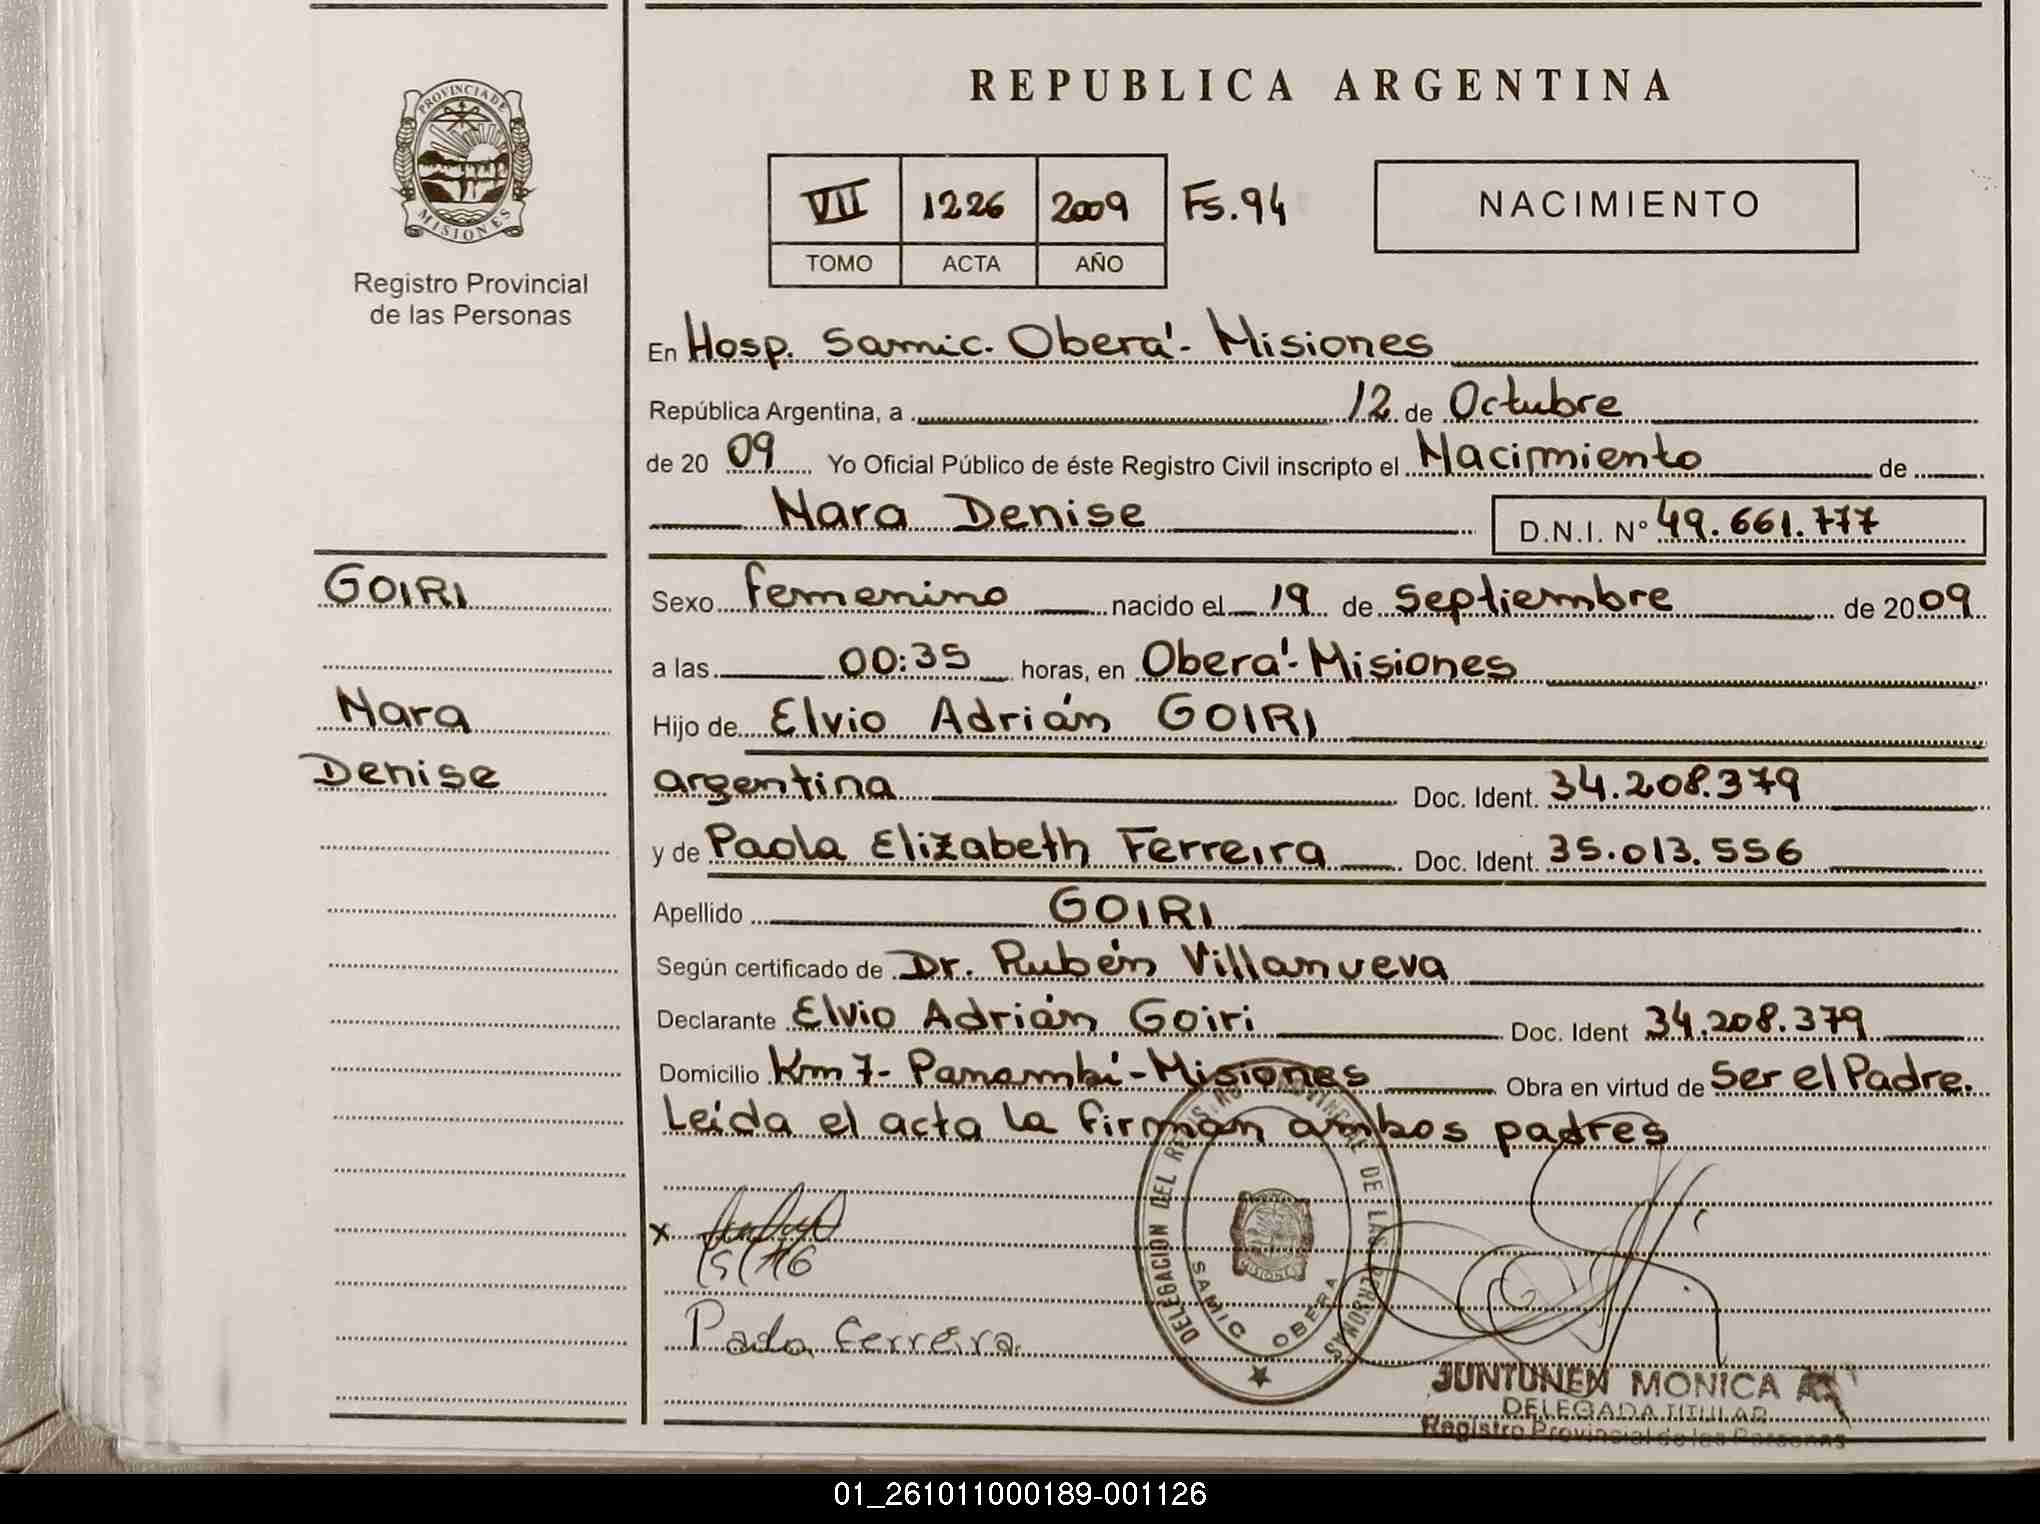 PROVINCIA DE
MISIONES
Registro Provincial
de las Personas
REPUBLICA ARGENTINA
VII 1226 2009 Fs.94
TOMO ACTA AÑO
NACIMIENTO
En Hosp. Samic. Oberá - Misiones
República Argentina, a 12 de Octubre
de 20 09 Yo Oficial Público de éste Registro Civil inscripto el Nacimiento de
Nara Denise D.N.I. N° 49.661.777
GOIRI
Nara
Denise
Sexo femenino nacido el 19 de Septiembre de 2009
a las 00:35 horas, en Oberá - Misiones
Hijo de Elvio Adrián GOIRI
argentina Doc. Ident. 34.208.379
y de Paola Elizabeth Ferreira Doc. Ident. 35.013.556
Apellido GOIRI
Según certificado de Dr. Rubén Villanueva
Declarante Elvio Adrián Goiri Doc. Ident 34.208.379
Domicilio Km 7 - Panambí - Misiones Obra en virtud de Ser el Padre.
Leída el acta la firman ambos padres
x
Paola Ferreira
DELEGACION DEL REGISTRO PROVINCIAL DE LAS PERSONAS
SAMIC OBERA
JUNTUNEN MONICA
DELEGADA TITULAR
Registro Provincial de las Personas
01_261011000189-001126